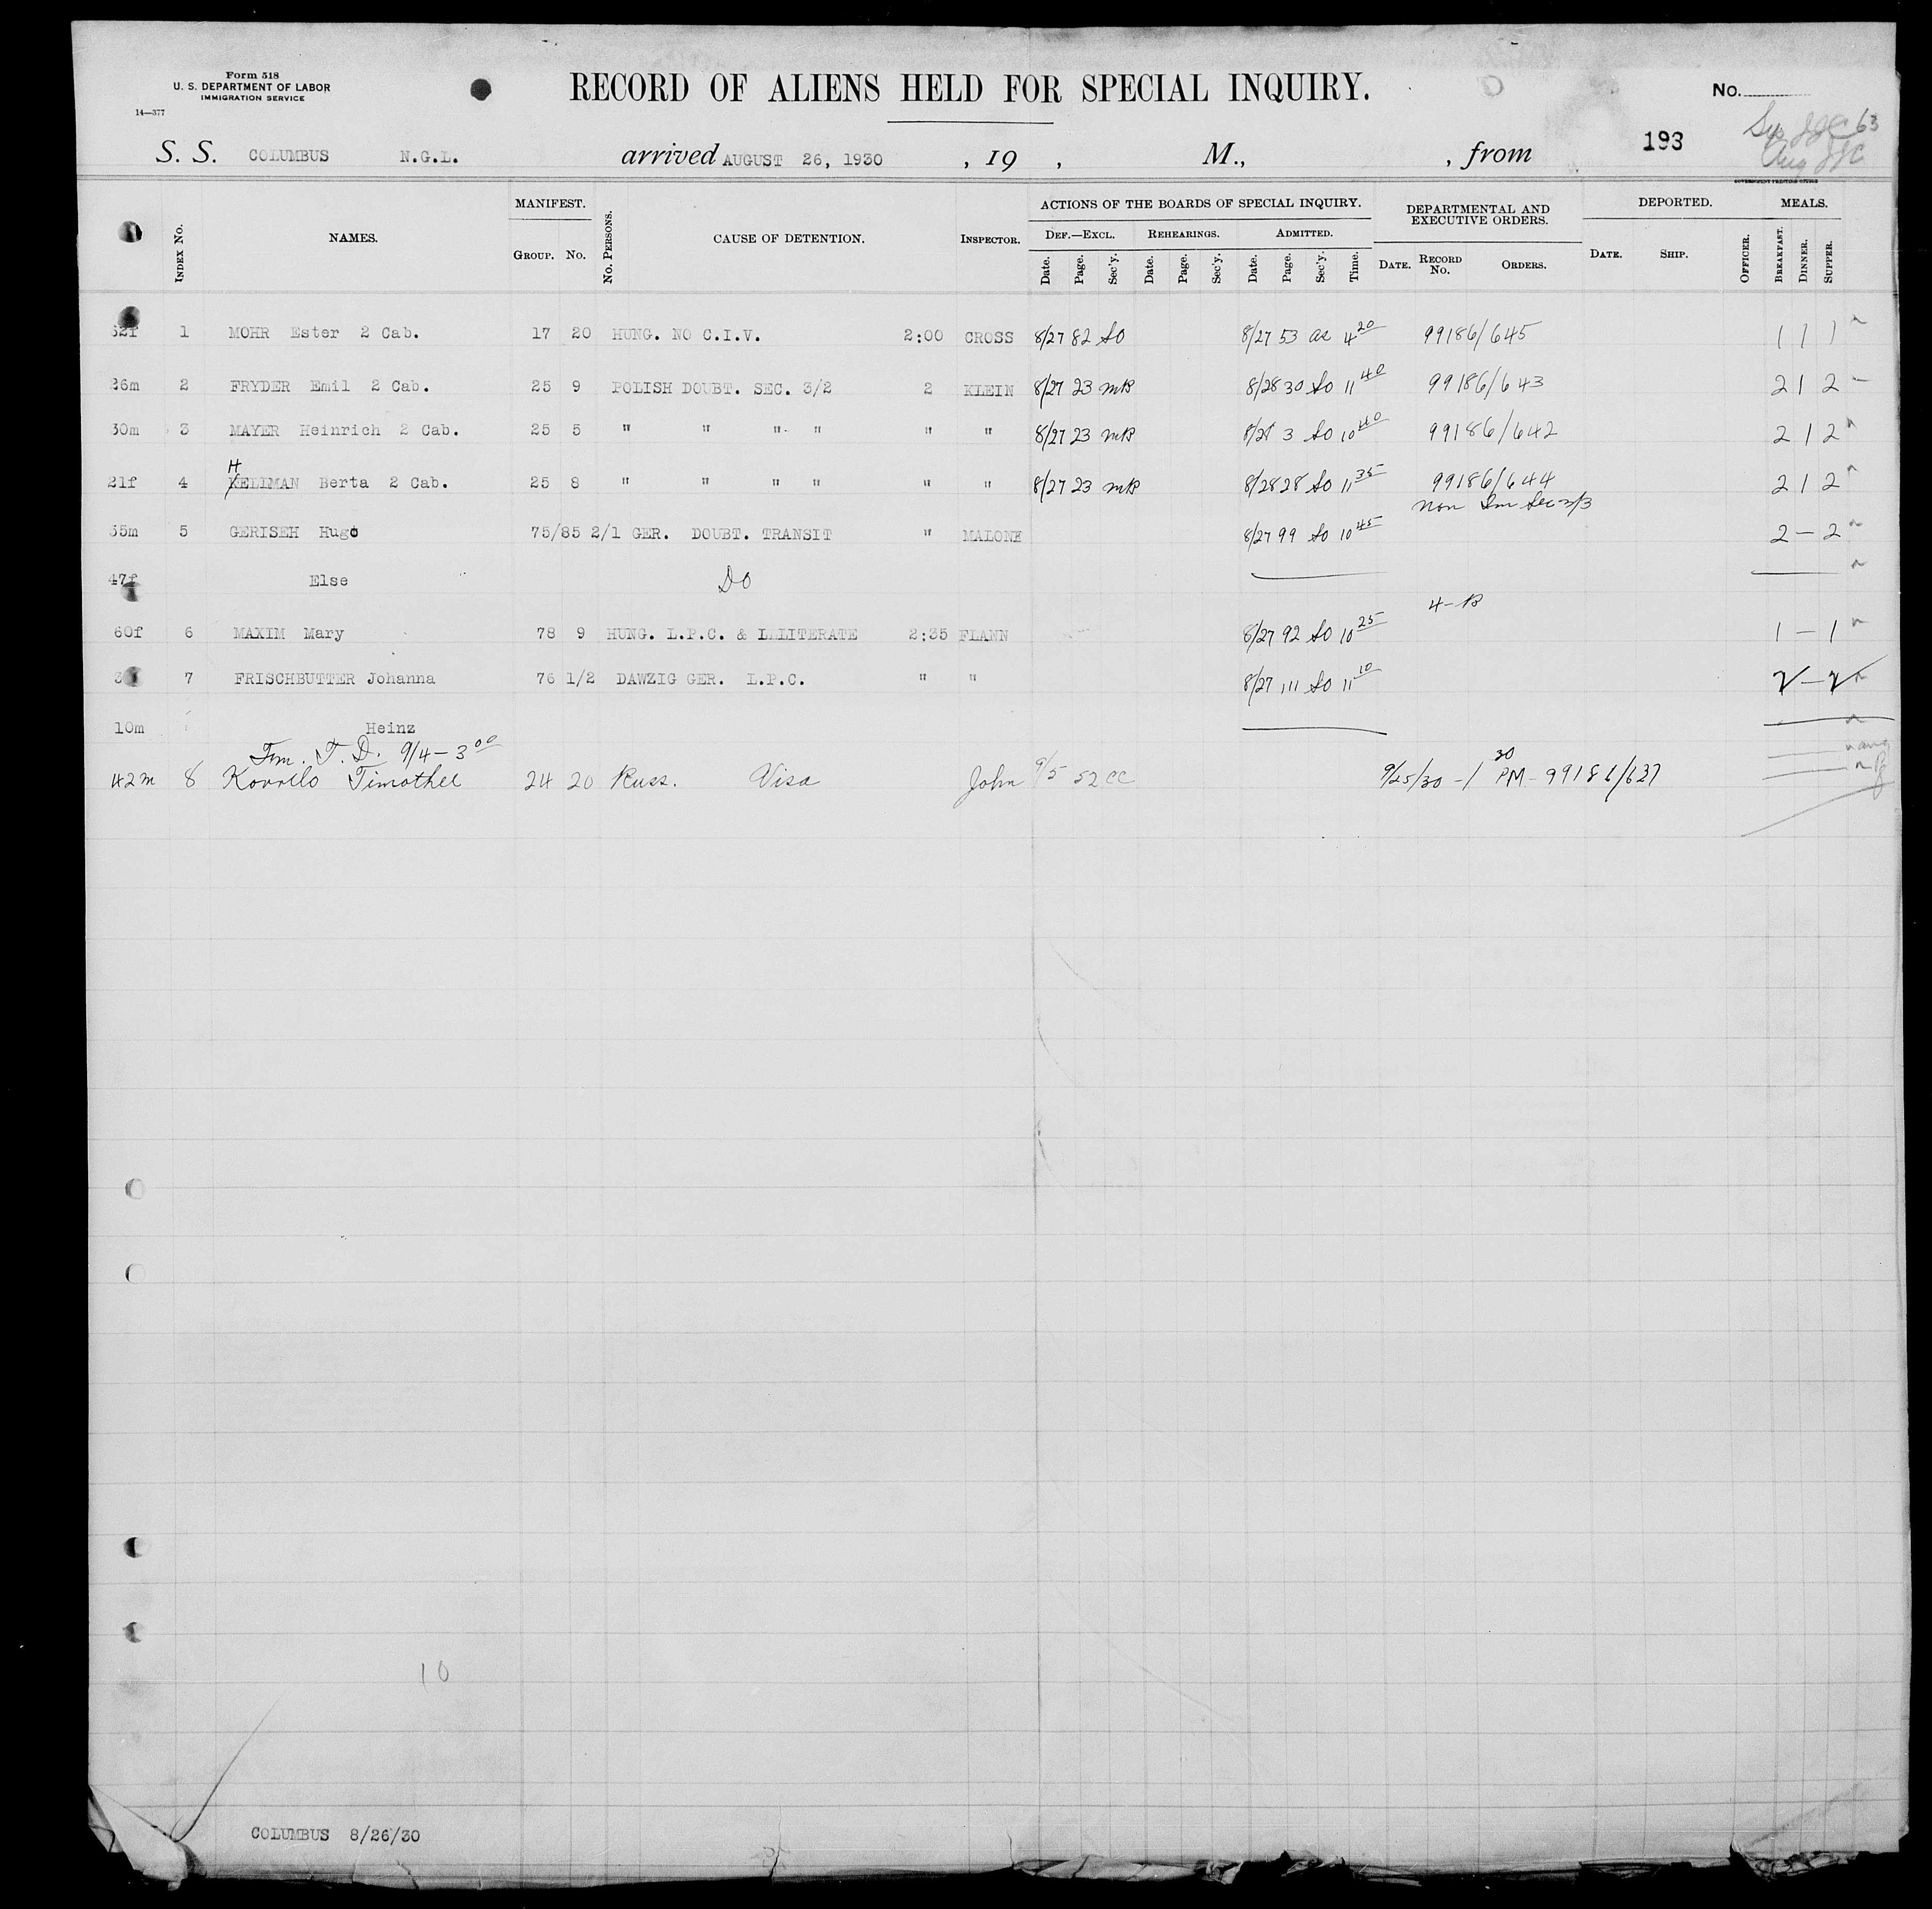 Form 518
U. S. DEPARTMENT OF LABOR
IMMIGRATION SERVICE
14—377
RECORD OF ALIENS HELD FOR SPECIAL INQUIRY.
No.
63
S. S. COLUMBUS N.G.L. arrived AUGUST 26, 1930 , 19 , M., , from 193
Aug
GOVERNMENT PRINTING OFFICE
INDEX No. NAMES. MANIFEST. GROUP. No. No. PERSONS. CAUSE OF DETENTION. INSPECTOR. ACTIONS OF THE BOARDS OF SPECIAL INQUIRY. DEPARTMENTAL AND EXECUTIVE ORDERS. DEPORTED. MEALS.
DEF.—EXCL. REHEARINGS. ADMITTED.
Date. Page. Sec'y. Date. Page. Sec'y. Date. Page. Sec'y. Time. DATE. RECORD No. ORDERS. DATE. SHIP. OFFICER. BREAKFAST. DINNER. SUPPER.
52f 1 MOHR Ester 2 Cab. 17 20 HUNG. NO C.I.V. 2:00 CROSS 8/27 82 SO 8/27 53 ac 4 20 99186/645 1 1 1
26m 2 FRYDER Emil 2 Cab. 25 9 POLISH DOUBT. SEC. 3/2 2 KLEIN 8/27 23 MB 8/28 30 SO 11 40 99186/643 2 1 2
30m 3 MAYER Heinrich 2 Cab. 25 5 " " " " " " 8/27 23 MB 8/28 3 SO 10 40 99186/642 2 1 2
H
21f 4 KELIMAN Berta 2 Cab. 25 8 " " " " " " 8/27 23 MB 8/28 28 SO 11 35 99186/644 2 1 2
Non Im Sec 3/3
35m 5 GERISEH Hugo 75/85 2/1 GER. DOUBT. TRANSIT " MALONE 8/27 99 SO 10 45 2 — 2
47f Else DO
4-B
60f 6 MAXIM Mary 78 9 HUNG. L.P.C. & ILLITERATE 2:35 FLANN 8/27 92 SO 10 25 1 — 1
7 FRISCHBUTTER Johanna 76 1/2 DAWZIG GER. L.P.C. " " 8/27 111 SO 11 10 2 — 2
10m Heinz
Fm. T. D. 9/4 - 3 00
42m 8 Korollo Timothee 24 20 Russ. Visa John 9/5 52 CC 9/25/30 - 1 30 PM - 99186/637
10
COLUMBUS 8/26/30